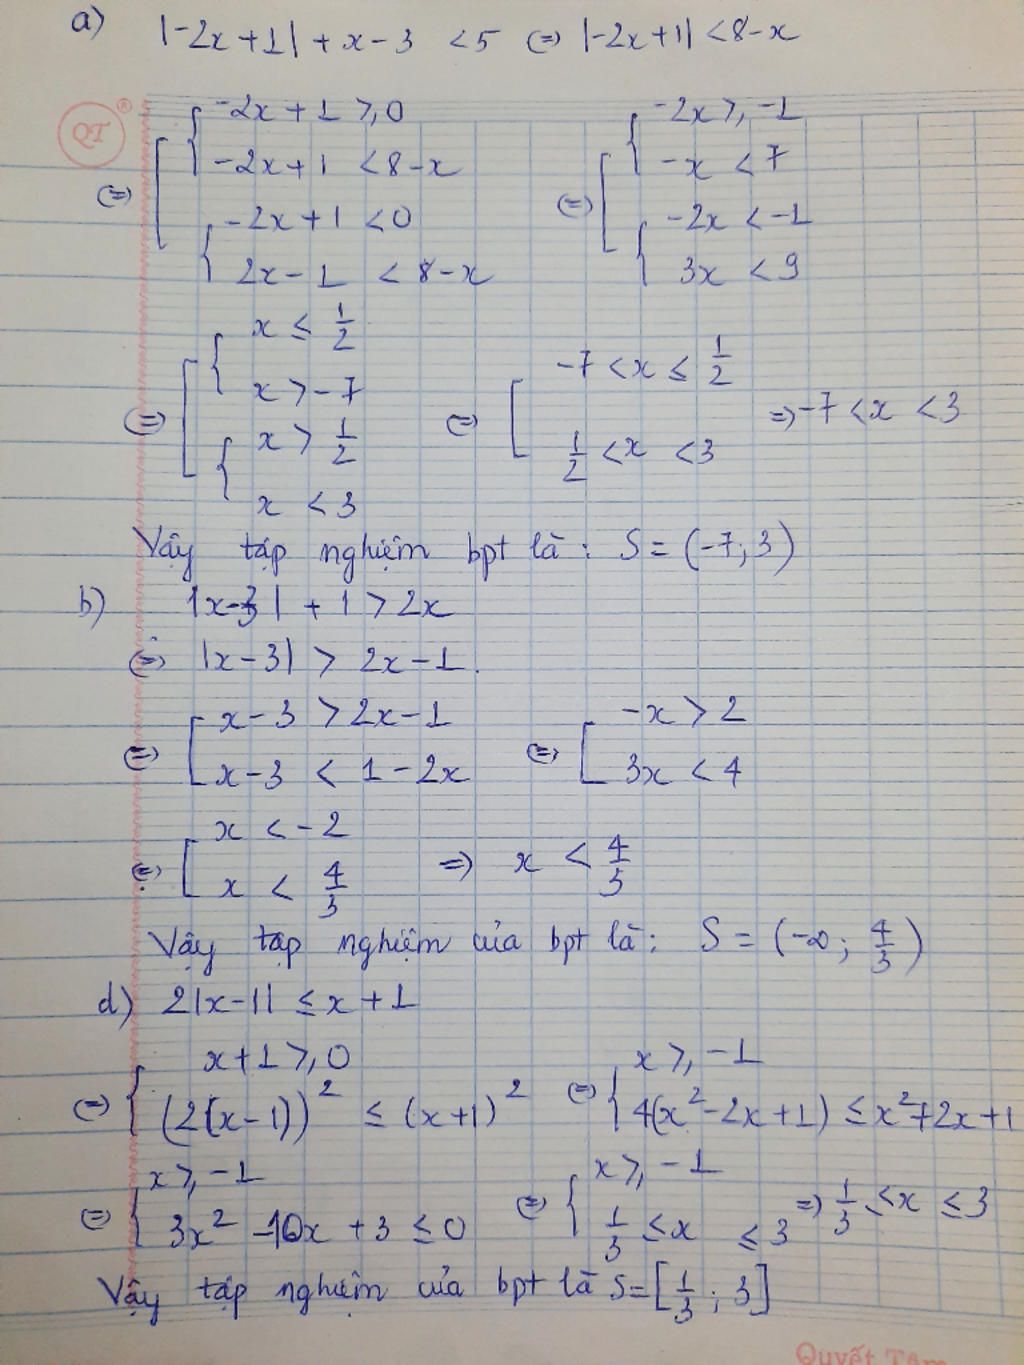 a) |-2x+1| + x-3 <5 (=) |-2x+1| <8-x
QT ®
(=) [ { -2x+1 ⩾ 0
-2x+1 <8-x
{ -2x+1 <0
2x-1 < 8-x
(=) [ { -2x ⩾ -1
-x < 7
{ -2x < -1
3x < 9
(=) [ { x ≤ 1/2
x > -7
{ x > 1/2
x < 3
(=) [ -7 < x ≤ 1/2
1/2 < x < 3
=) -7 < x < 3
Vậy tập nghiệm bpt là: S = (-7; 3)
b) |x-3| + 1 > 2x
(=) |x-3| > 2x-1.
(=) [ x-3 > 2x-1
x-3 < 1-2x
(=) [ -x > 2
3x < 4
(=) [ x < -2
x < 4/3
=) x < 4/3
Vậy tập nghiệm của bpt là: S = (-∞; 4/3)
d) 2|x-1| ≤ x+1
(=) { x+1 ⩾ 0
(2(x-1))² ≤ (x+1)²
(=) { x ⩾ -1
4(x²-2x+1) ≤ x²+2x+1
(=) { x ⩾ -1
3x² -10x + 3 ≤ 0
(=) { x ⩾ -1
1/3 ≤ x ≤ 3
=) 1/3 ≤ x ≤ 3
Vậy tập nghiệm của bpt là S = [1/3; 3]
Quyết Tâm